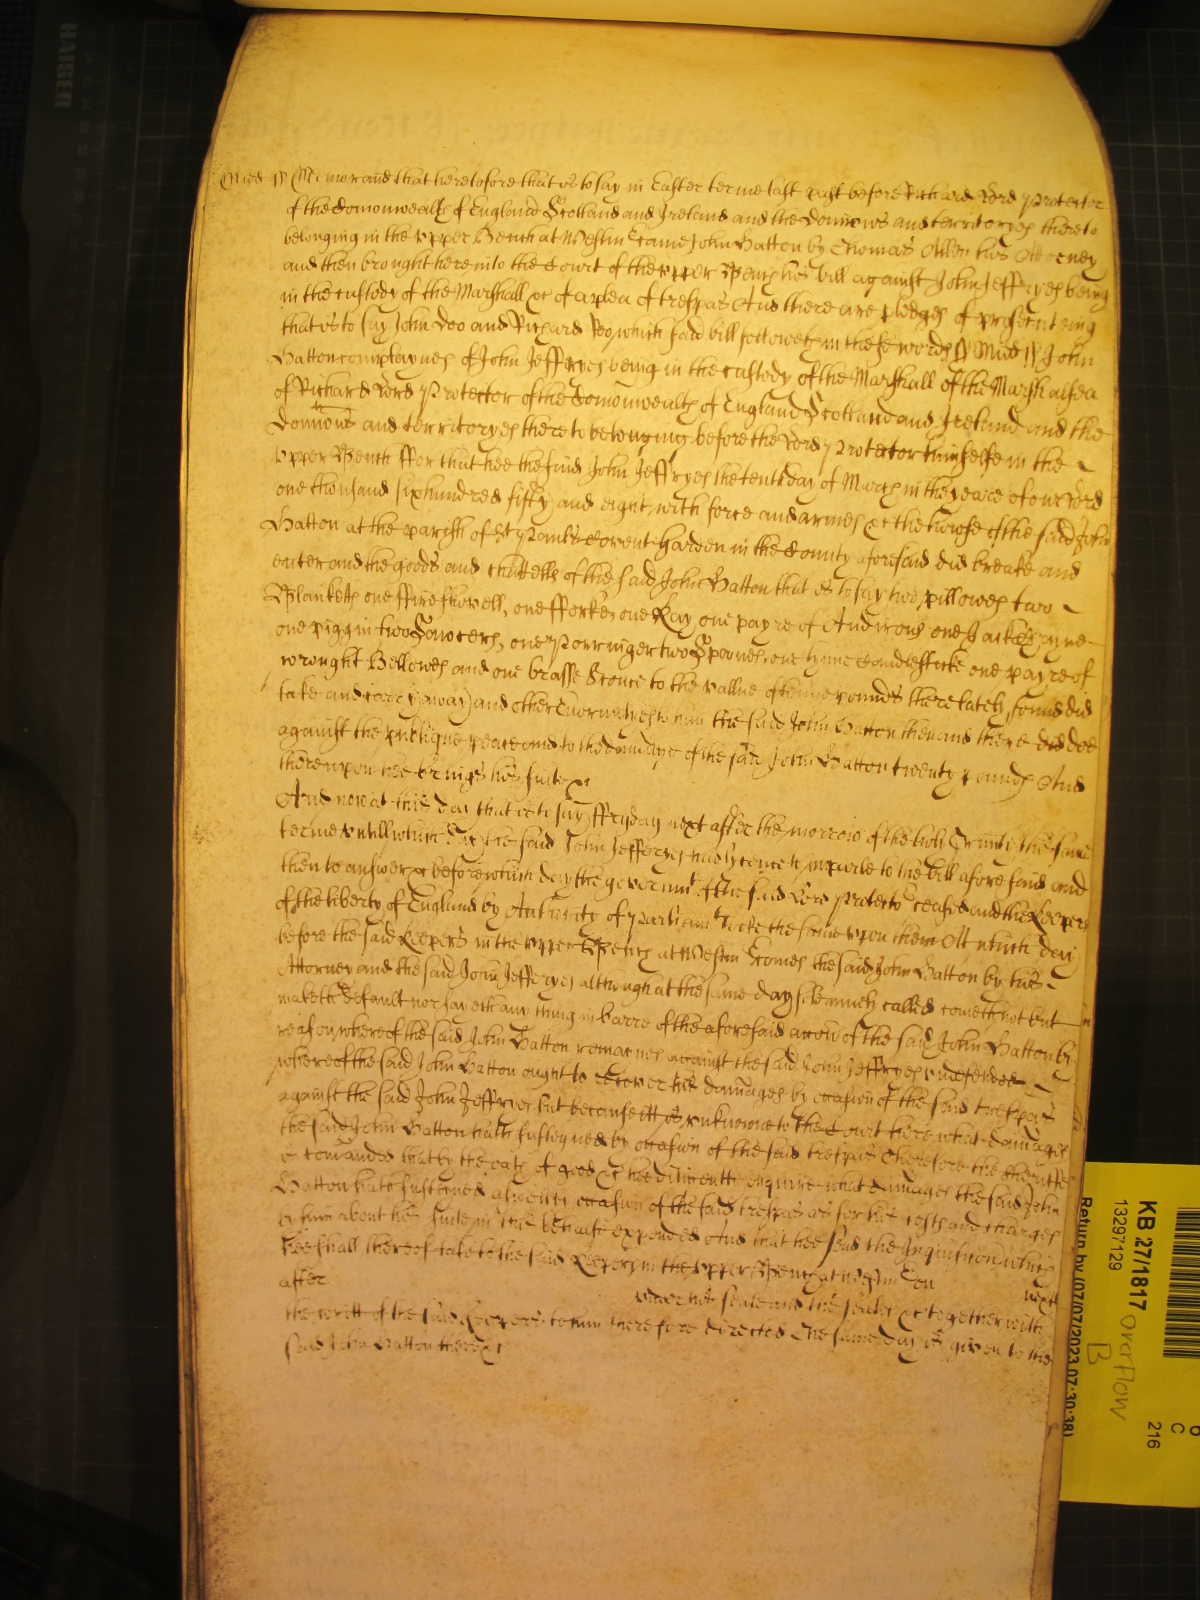 Midd ss Memorand that heretofore that is to say in Easter terme last past before Richard Lord Protector
of the Comonwealth of England Scotland and Ireland and the Dominions and territoryes thereto
belonging in the Upper Bench at Westm Came John Batton by Thomas Allen his Attorney
and then brought here into the Court of the Upper Bench his bill against John Jeffryes being
in the custody of the Marshall &c of a plea of trespas And there are pledges of prosecuteing
that is to say John Doo and Richard Roo, which said bill followeth in these words ss Midd ss John
Batton complaynes of John Jeffryes being in the custody of the Marshall of the Marshalsea
of Richard Lord Protector of the Comonwealth of England Scotland and Ireland and the
Domions and territoryes thereto belonging before the Lord Protector himselfe in the
Upper Bench ffor that hee the said John Jeffryes the tenth day of March in the yeare of our Lord
one thousand sixhundred fifty and eight, with force and armes &c the howse of the said John
Batton at the parish of St Pauls Covent Garden in the County aforesaid did breake and
enter and the goods and chattells of the said John Batton that is to say two pillowes two
Blanketts one ffire shovell, one fforke, one Kay one payre of Andirons one Jack
one piggin two Sawcers, one Porringer two Spoones, one tynne Candlesticke one payre of
wrought Bellowes and one brasse Sconce to the vallue of tenne pounds there lately found did
take and carry (away) and other Enormityes to him the said John Batton then and there did doe
against the publique peace and to the damage of the said John Batton twenty pounds And
thereupon hee brings his suite &c
And now at this day that is to say ffryday next after the morrow of the holy Trinity the same
terme untill which day the said John Jefferyes had lycence to imparle to the bill aforesaid and
then to answer &c before which day the governmt of the said Lord Protector ceased and the Keepers
of the liberty of England by Authority of Parliamt tooke the same upon them Att which day
before the said Keepers in the Upper Bench at Westm Comes the said John Batton by his
Attorney and the said John Jefferyes although at the same day solemnely called cometh not but
maketh default nor sayeth any thing in barre of the aforesaid accon of the said John Batton by
reason whereof the said John Batton remaines against the said John Jeffryes undefended
whereof the said John Batton ought to recover his damages by occasion of the said trespas
against the said John Jeffryes but because itt is unknowne to the Court here what damages
the said John Batton hath susteyned by occasion of the said trespas Therefore the Sheriffe
is comanded that by the oath of good &c hee dilligently enquire what damages the said John
Batton hath susteined aswell by occasion of the said trespas as for his costs and charges
by him about his suite in this behalfe expended And that hee send the Inquisition which
hee shall thereof take to the said Keepers in the Upper Bench at Westm on
after next
under his seale and the seales &c together with
the writt of the said Keepers to him therefore directed The same day is given to the
said John Batton there &c
HAISER
KB 27/1817
13297129
Overflow
B
Return by (07/07/2023 07:30:38)
C
216